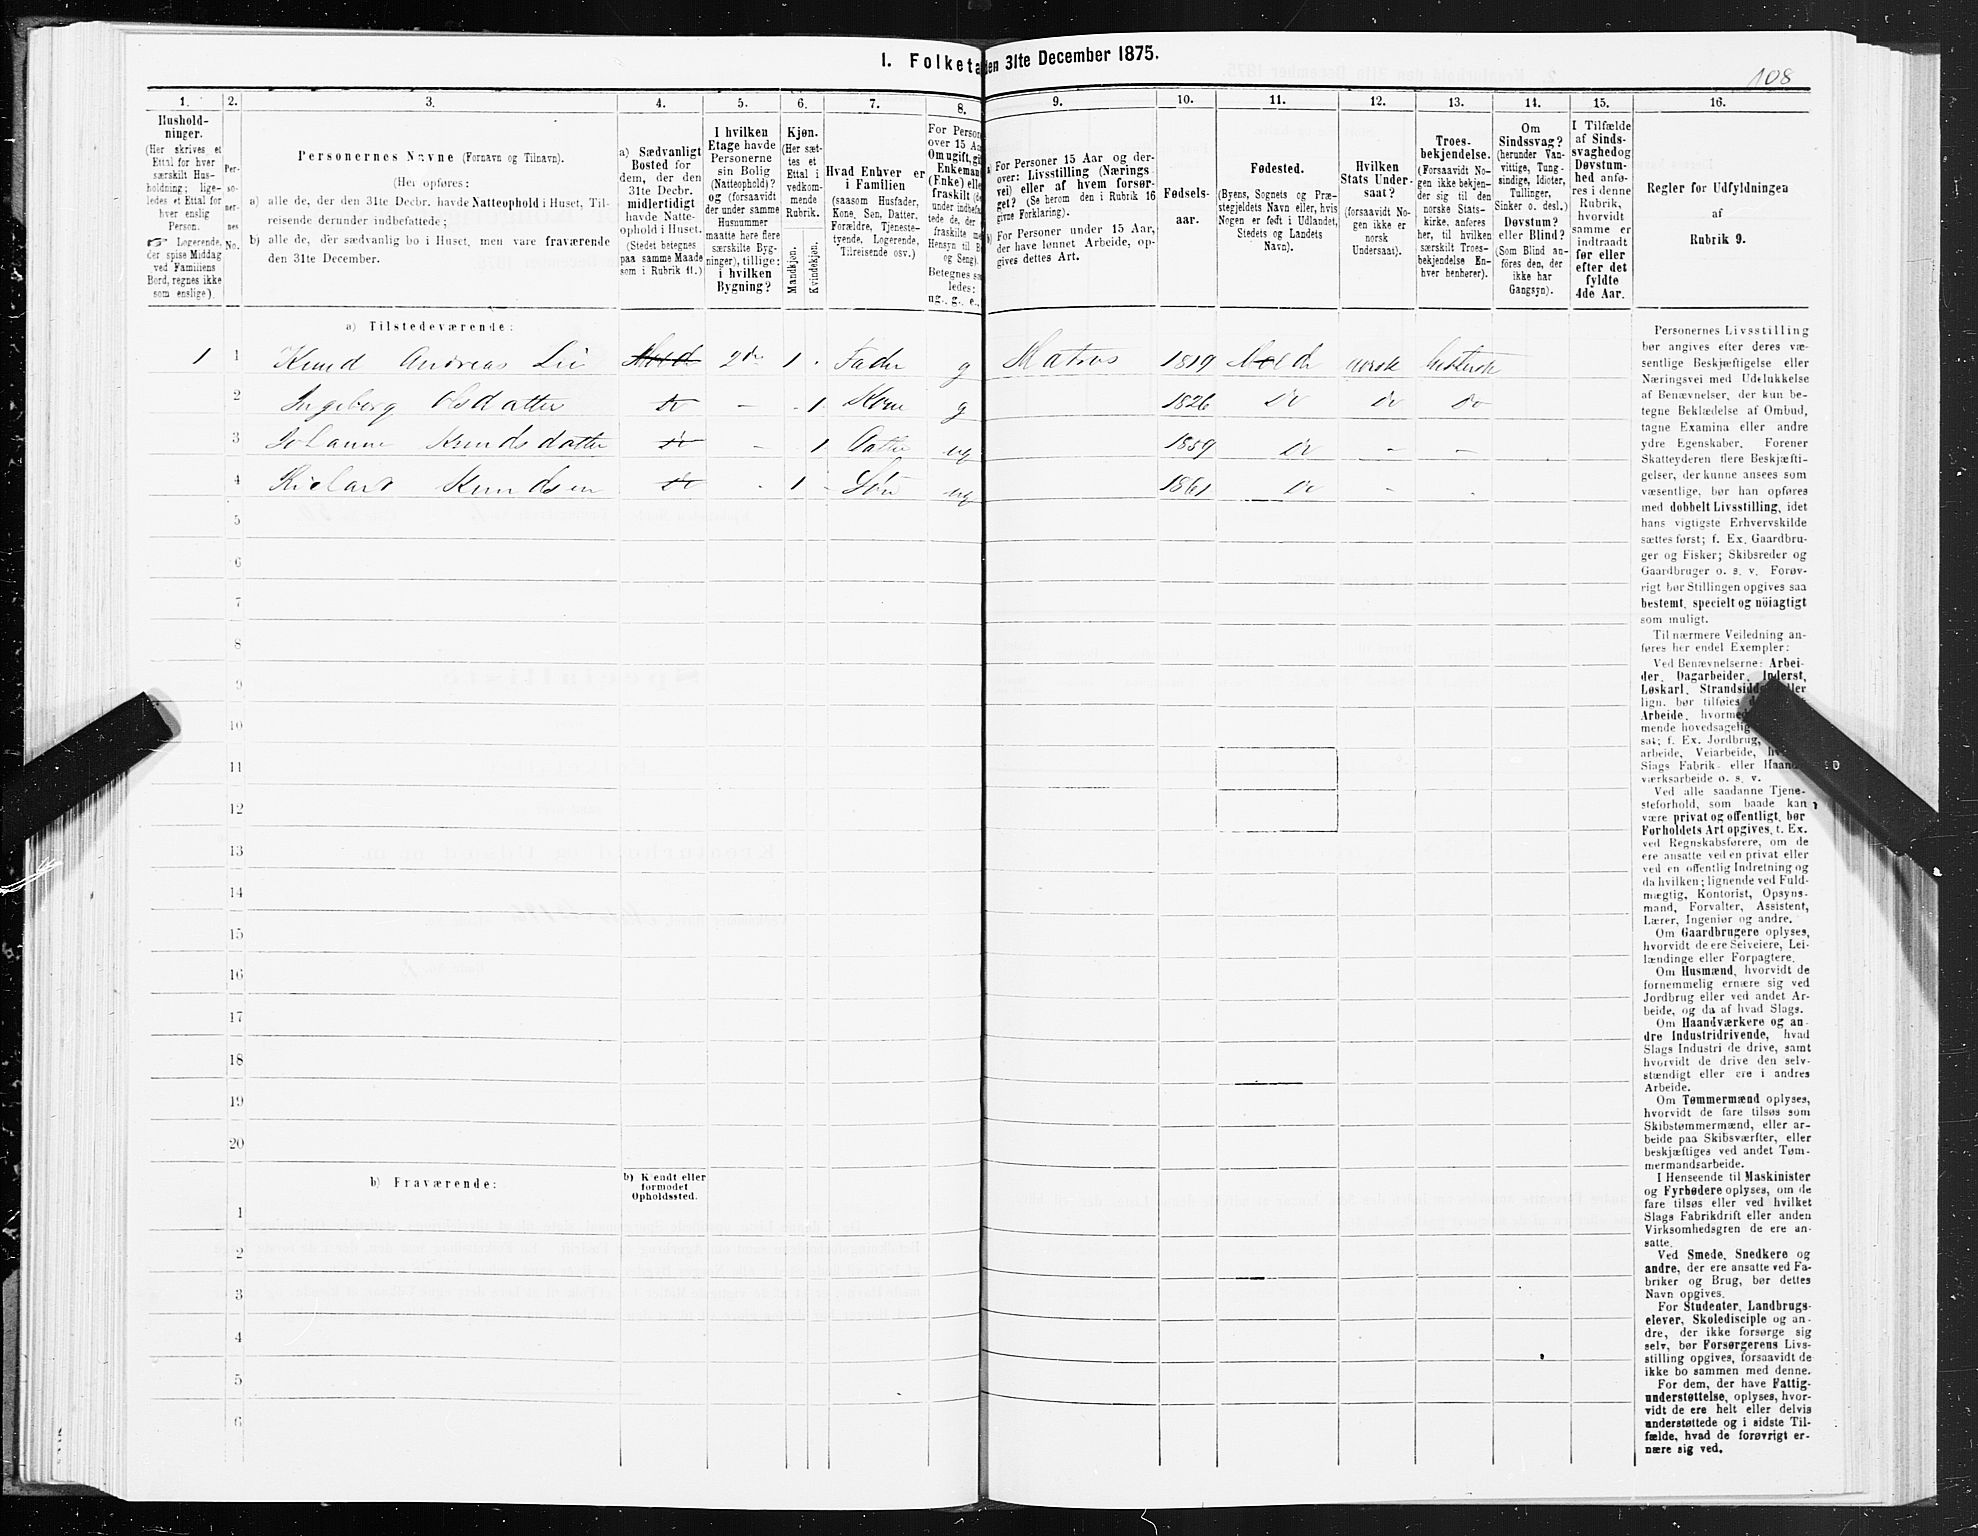 I. Folketa den 31te December 1875.
108
1.
2.
3.
4.
5.
6.
7.
8.
9.
10.
11.
12.
13.
14.
15.
16.
Hushold-
ninger.
(Her skrives et
Ettal for hver
særskilt Hus-
holdning; lige-
ledes et Ettal for
hver enslig
Person.
☞ Logerende,
der spise Middag
ved Familiens
Bord, regnes ikke
som enslige).
Per-
so-
ner-
nes
No.
Personernes Navne (Fornavn og Tilnavn).
(Her opføres:
a) alle de, der den 31te Decbr. havde Natteophold i Huset, Til-
reisende derunder indbefattede;
b) alle de, der sædvanlig bo i Huset, men vare fraværende
den 31te December.
a) Sædvanligt
Bosted for
dem, der den
31te Decbr.
midlertidigt
havde Natte-
ophold i Huset.
(Stedet betegnes
paa samme Maade
som i Rubrik 11.)
I hvilken
Etage havde
Personerne
sin Bolig
(Natteophold)?
og (forsaavidt
der under samme
Husnummer
maatte høre flere
særskilte Byg-
ninger), tillige:
i hvilken
Bygning?
Kjøn.
(Her sæt-
tes et
Ettal i
vedkom-
mende
Rubrik.
Mandkjøn.
Kvindekjøn.
Hvad Enhver er
i Familien
(saasom Husfader,
Kone, Søn, Datter,
Forældre, Tjeneste-
tyende, Logerende,
Tilreisende osv.)
For Person
over 15 Aa
Om ugift, gi
Enkeman
(Enke) elle
fraskilt
under indbefa
tede de, der
fraskilte me
Hensyn til B
og Seng).
Betegnes sa
ledes:
ug., g., e.,
a) For Personer 15 Aar og der-
over: Livsstilling (Nærings
vei) eller af hvem forsør-
get? (Se herom den i Rubrik 16
givne Forklaring).
b) For Personer under 15 Aar,
der have lønnet Arbeide, op-
gives dettes Art.
Fødsels-
aar.
Fødested.
(Byens, Sognets og Præ-
stegjeldets Navn eller, hvis
Nogen er født i Udlandet,
Stedets og Landets
Navn).
Hvilken
Stats Under-
saat?
(forsaavidt No-
gen ikke er
norsk
Undersaat).
Troes-
bekjendelse.
(Forsaavidt No-
gen ikke bekjen-
der sig til den
norske Stats-
kirke, anføres
her, til hvilken
særskilt Troes-
bekjendelse En-
hver henhører).
Om
Sindssvag?
(herunder Van-
vittige, Tung-
sindige, Idioter,
Tullinger,
Sinker o. desl.)
Døvstum?
eller Blind?
(Som Blind an-
føres den, der
ikke har
Gangsyn).
I Tilfælde
af Sinds-
svaghed og
Døvstum-
hed anfø-
res i denne
Rubrik,
hvorvidt
samme er
indtraadt
før eller
efter det
fyldte
4de Aar.
Regler for Udfyldningen
af
Rubrik 9.
a) Tilstedeværende:
1 1 Knud Andreas Lie Molde 2den 1 Fader g Matros 1819 Molde norsk luthersk
2 Ingeborg Olsdatter do - 1 Kone g 1826 do do do
3 Johanne Knudsdatter do - 1 Datter ug 1859 do - -
4 Richart Knudsen do 1 Søn ug 1861 do -
5
6
7
8
9
10
11
12
13
14
15
16
17
18
19
20
b) Fraværende:
b) Kjendt eller
formodet
Opholdssted.
1
2
3
4
5
6
Personernes Livsstilling
bør angives efter deres væ-
sentlige Beskjæftigelse eller
Næringsvei med Udelukkelse
af Benævnelser, der kun be-
tegne Beklædelse af Ombud,
tagne Examina eller andre
ydre Egenskaber. Forener
Skatteyderen flere Beskjæfti-
gelser, der kunne ansees som
væsentlige, bør han opføres
med dobbelt Livsstilling, idet
hans vigtigste Erhvervskilde
sættes først; f. Ex. Gaardbru-
ger og Fisker; Skibsreder og
Gaardbruger o. s. v. Forøv-
rigt bør Stillingen opgives saa
bestemt, specielt og nöiagtigt
som muligt.
Til nærmere Veiledning an-
føres her endel Exempler:
Ved Benævnelserne: Arbei-
der, Dagarbeider, Inderst,
Løskarl, Strandsidd eller
lign. bør tilføies
Arbeide, hvorme
mende hovedsagelig
sat; f. Ex. Jordbrug,
arbeide, Veiarbeide,
Slags Fabrik- eller Haand-
værksarbeide o. s. v.
Ved alle saadanne Tjene-
steforhold, som baade kan
være privat og offentligt, bør
Forholdets Art opgives, t. Ex.
ved Regnskabsførere, om de
ere ansatte ved en privat eller
ved en offentlig Indretning og
da hvilken; lignende ved Fuld-
mægtig, Kontorist, Opsyns-
mand, Forvalter, Assistent,
Lærer, Ingeniør og andre.
Om Gaardbrugere oplyses,
hvorvidt de ere Selveiere, Lei-
lændinge eller Forpagtere.
Om Husmænd, hvorvidt de
fornemmelig ernære sig ved
Jordbrug eller ved andet Ar-
beide, og da af hvad Slags.
Om Haandværkere og an
dre Industridrivende, hvad
Slags Industri de drive, samt
hvorvidt de drive den selv-
stændigt eller ere i andres
Arbeide.
Om Tømmermænd oplyses,
hvorvidt de fare tilsøs som
Skibstømmermænd, eller ar-
beide paa Skibsværfter, eller
beskjæftiges ved andet Tøm-
mermandsarbeide.
I Henseende til Maskinister
og Fyrbødere oplyses, om de
fare tilsøs eller ved hvilket
Slags Fabrikdrift eller anden
Virksomhedsgren de ere an-
satte.
Ved Smede, Snedkere og
andre, der ere ansatte ved Fa-
briker og Brug, bør dettes
Navn opgives.
For Studenter, Landbrugs-
elever, Skoledisciple og an-
dre, der ikke forsørge sig
selv, bør Forsørgerens Livs-
stilling opgives, forsaavidt de
ikke bo sammen med denne.
For dem, der have Fattig-
understøttelse, oplyses, hvor-
vidt de ere helt eller delvis
understøttede og i sidste Til-
fælde, hvad de forøvrigt er-
nære sig ved.